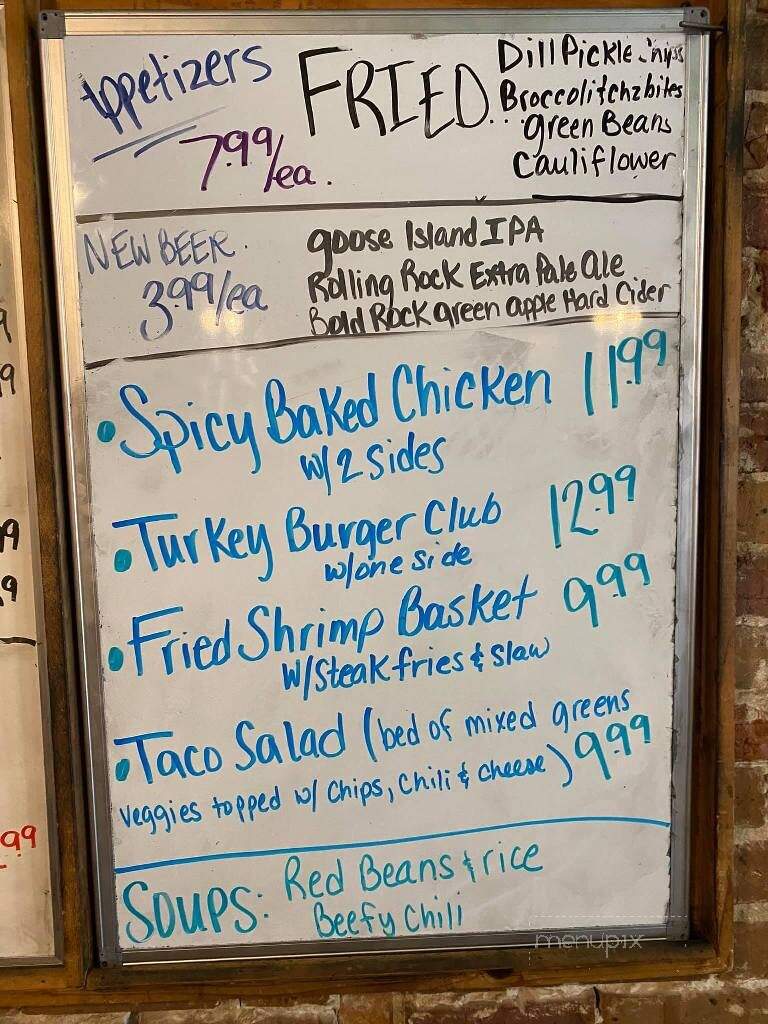 Appetizers
7.99/ea.
FRIED...
Dill Pickle
Broccoli & chz bites
green Beans
Cauliflower
NEW BEER.
3.99/ea
goose Island IPA
Rolling Rock Extra Pale Ale
Bold Rock green apple Hard Cider
• Spicy Baked Chicken 11.99
w/2 sides
• Turkey Burger Club 12.99
w/one side
• Fried Shrimp Basket 9.99
w/Steak fries & Slaw
• Taco Salad (bed of mixed greens
veggies topped w/ Chips, Chili & cheese) 9.99
SOUPS: Red Beans & rice
Beefy Chili
menupix
9
9
9
9
99